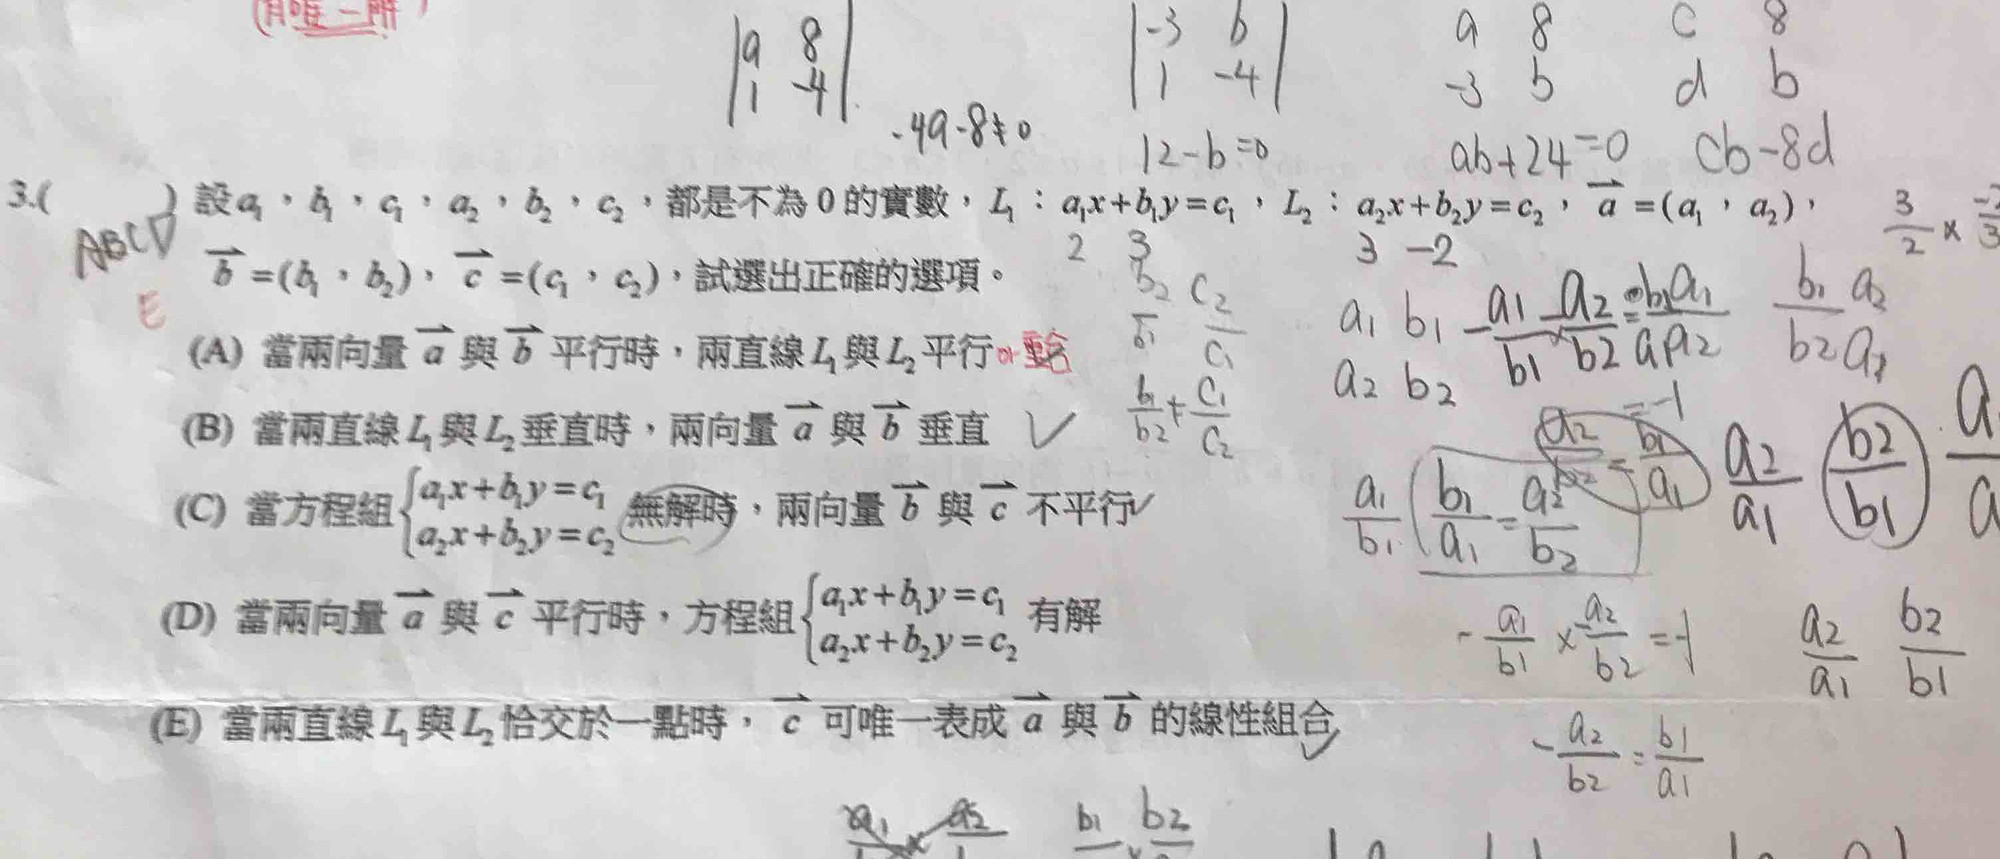 (有唯一解)
a 8
1 -4
-4a-8≠0
-3 b
1 -4
12-b=0
a 8
-3 b
ab+24=0
c 8
d b
cb-8d
3.( ) 設a₁,b₁,c₁,a₂,b₂,c₂,都是不為0的實數,L₁:a₁x+b₁y=c₁,L₂:a₂x+b₂y=c₂,a=(a₁,a₂),
ABCD
E
b=(b₁,b₂),c=(c₁,c₂),試選出正確的選項。
2 3
3 -2
(A) 當兩向量a與b平行時,兩直線L₁與L₂平行or重合
(B) 當兩直線L₁與L₂垂直時,兩向量a與b垂直 ✓
(C) 當方程組{a₁x+b₁y=c₁
a₂x+b₂y=c₂ 無解時,兩向量b與c不平行✓
(D) 當兩向量a與c平行時,方程組{a₁x+b₁y=c₁
a₂x+b₂y=c₂ 有解
(E) 當兩直線L₁與L₂恰交於一點時,c可唯一表成a與b的線性組合✓
b₂/b₁ c₂/c₁
b₁/b₂ ≠ c₁/c₂
a₁ b₁
a₂ b₂
a₁/b₁ b₁/a₁ = a₂/b₂
a₂/a₁ b₂/b₁
-a₁/b₁ × a₂/b₂ = -1
a₂/a₁ b₂/b₁
-a₂/b₂ = b₁/a₁